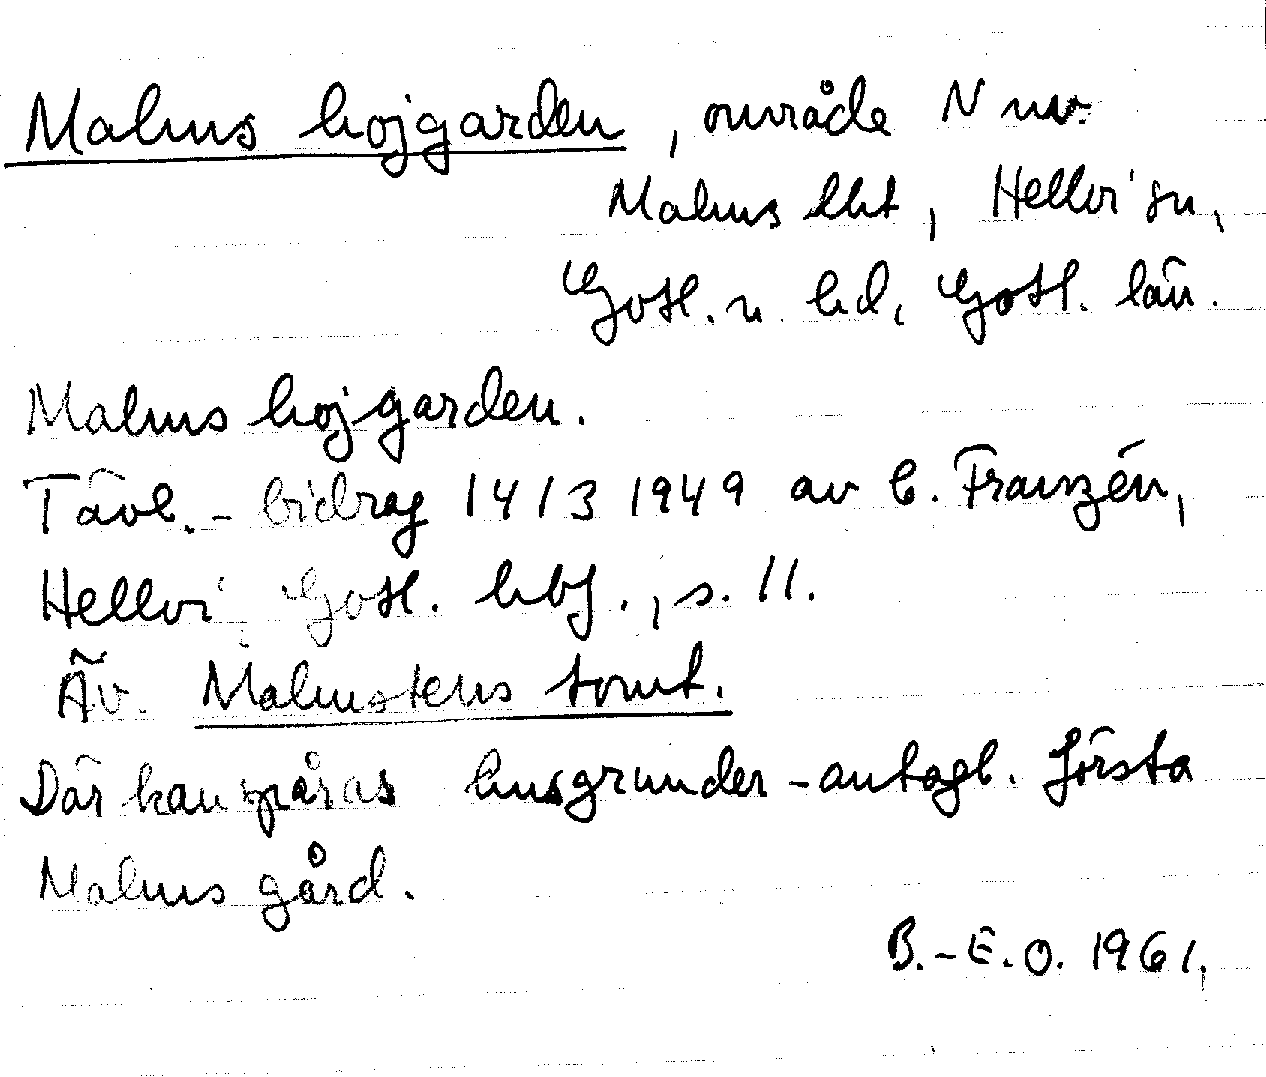 Malms hojgarden, område N nuv.
Malms lht, Hellvi sn,
Gotl. n. hd, Gotl. län.
Malms hojgarden.
Tävl.-bidrag 14/3 1949 av C. Franzén,
Hellvi, Gotl. hbf., s. 11.
Äv. Malmstens tomt.
Där kan spåras husgrunder - antagl. första
Malms gård.
B.-E.O. 1961.